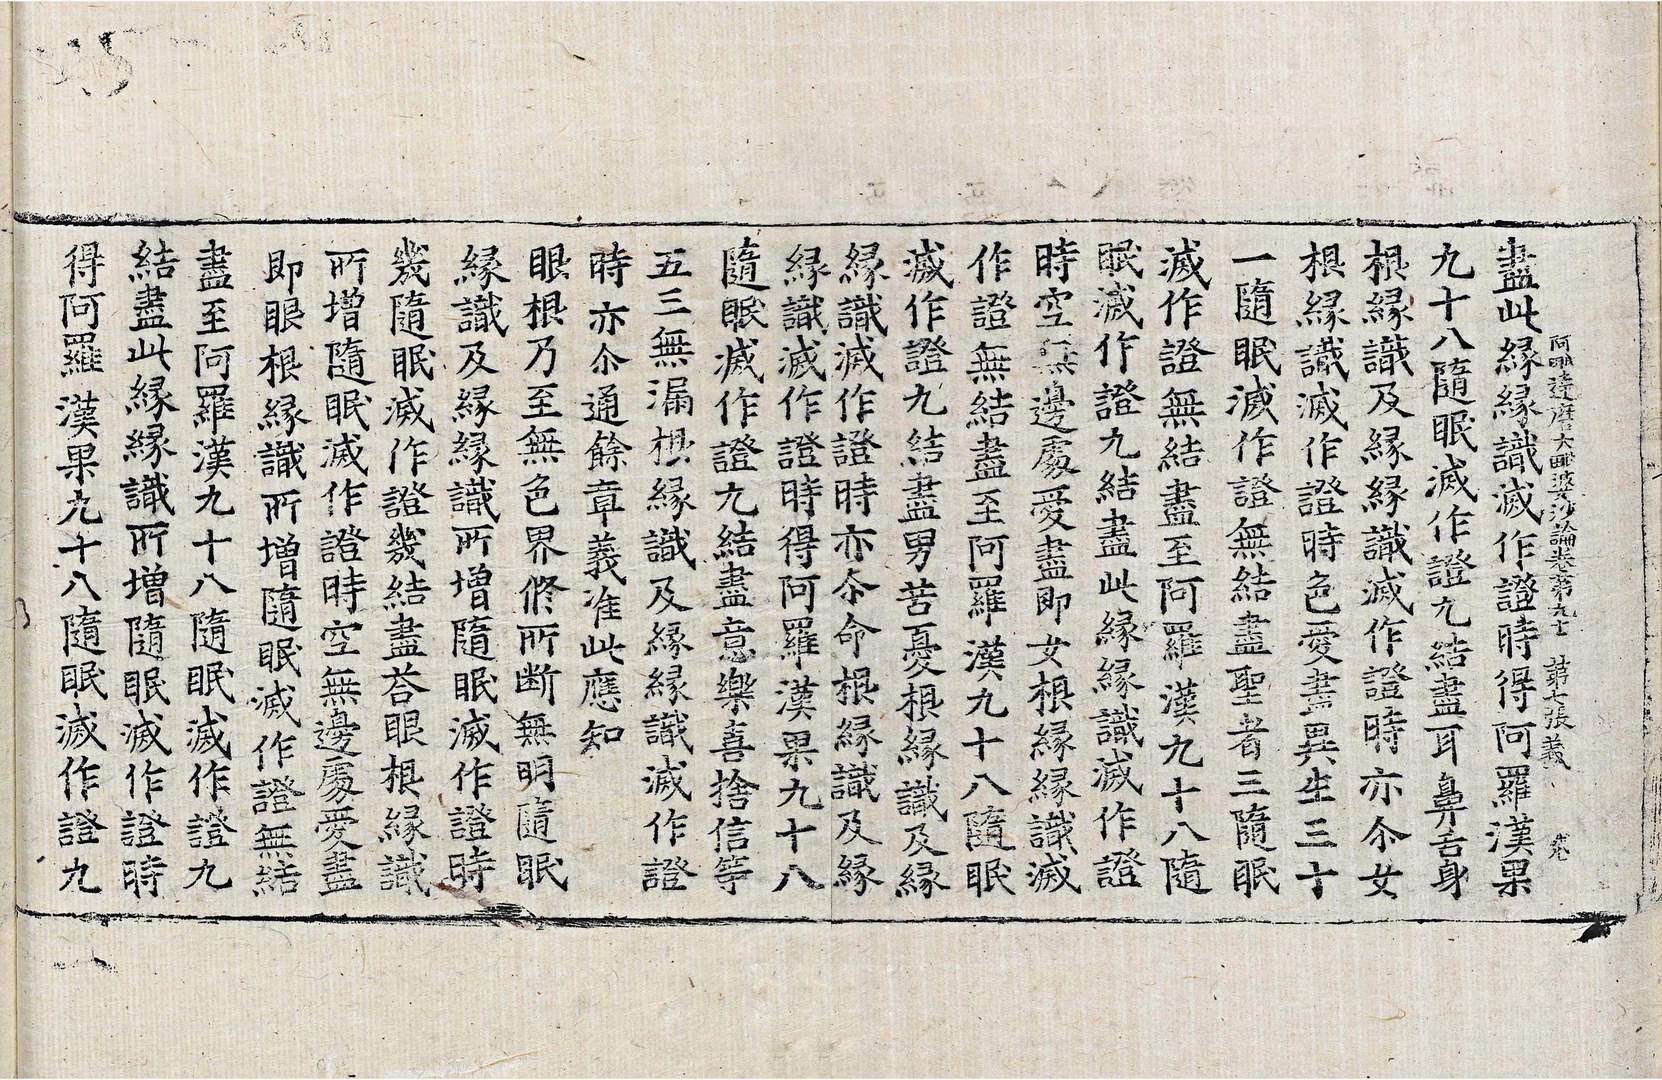 阿毗達磨大毗婆沙論卷第九十 第七張 義
盡此緣緣識滅作證時得阿羅漢果
九十八隨眠滅作證九結盡耳鼻舌身
根緣識及緣緣識滅作證時亦尒女
根緣識滅作證時色愛盡異生三十
一隨眠滅作證無結盡聖者三隨眠
滅作證無結盡至阿羅漢九十八隨
眠滅作證九結盡此緣緣識滅作證
時空無邊處愛盡即女根緣緣識滅
作證無結盡至阿羅漢九十八隨眠
滅作證九結盡男苦憂根緣識及緣
緣識滅作證時亦尒命根緣識及緣
緣識滅作證時得阿羅漢果九十八
隨眠滅作證九結盡意樂喜捨信等
五三無漏根緣識及緣緣識滅作證
時亦尒通餘章義准此應知
眼根乃至無色界修所断無明隨眠
緣識及緣緣識所增隨眠滅作證時
幾隨眠滅作證幾結盡荅眼根緣識
所增隨眠滅作證時空無邊處愛盡
即眼根緣識所增隨眠滅作證無結
盡至阿羅漢九十八隨眠滅作證九
結盡此緣緣識所增隨眠滅作證時
得阿羅漢果九十八隨眠滅作證九